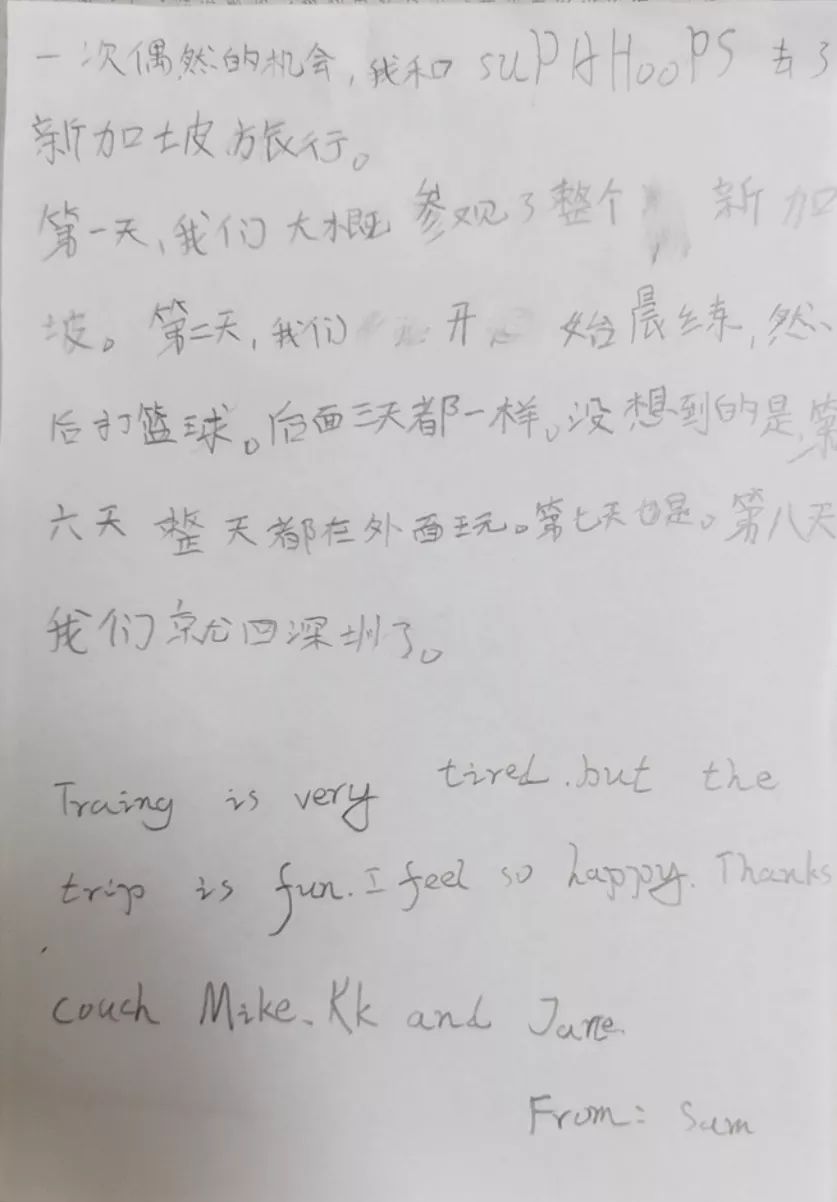 一次偶然的机会,我和 SUPAHOOPS 去了
新加坡旅行。
第一天,我们大概参观了整个 新加
坡。第二天,我们 开 始晨练,然
后打篮球。后面三天都一样。没想到的是,第
六天 整天都在外面玩。第七天也是。第八天
我们就回深圳了。
Traing is very tired.but the
trip is fun. I feel so happy. Thanks
couch Mike、Kk and Jane.
From: Sam